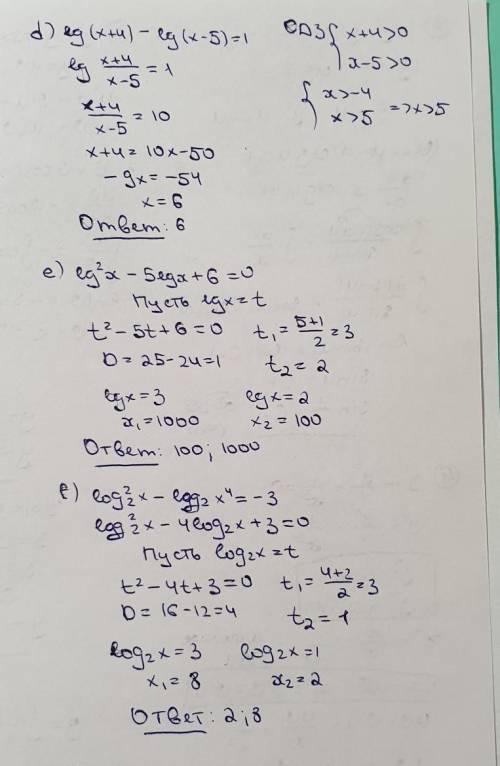 d) lg(x+4) - lg(x-5)=1
ОДЗ { x+4>0
x-5>0
lg x+4/x-5 = 1
{ x>-4
x>5 => x>5
x+4/x-5 = 10
x+4=10x-50
-9x=-54
x=6
Ответ: 6
e) lg²x - 5lgx+6=0
Пусть lgx=t
t²-5t+6=0 t₁=5+1/2=3
D=25-24=1 t₂=2
lgx=3 lgx=2
x₁=1000 x₂=100
Ответ: 100; 1000
f) log₂²x - log₂x⁴=-3
log₂²x - 4log₂x+3=0
Пусть log₂x=t
t²-4t+3=0 t₁=4+2/2=3
D=16-12=4 t₂=1
log₂x=3 log₂x=1
x₁=8 x₂=2
Ответ: 2;8